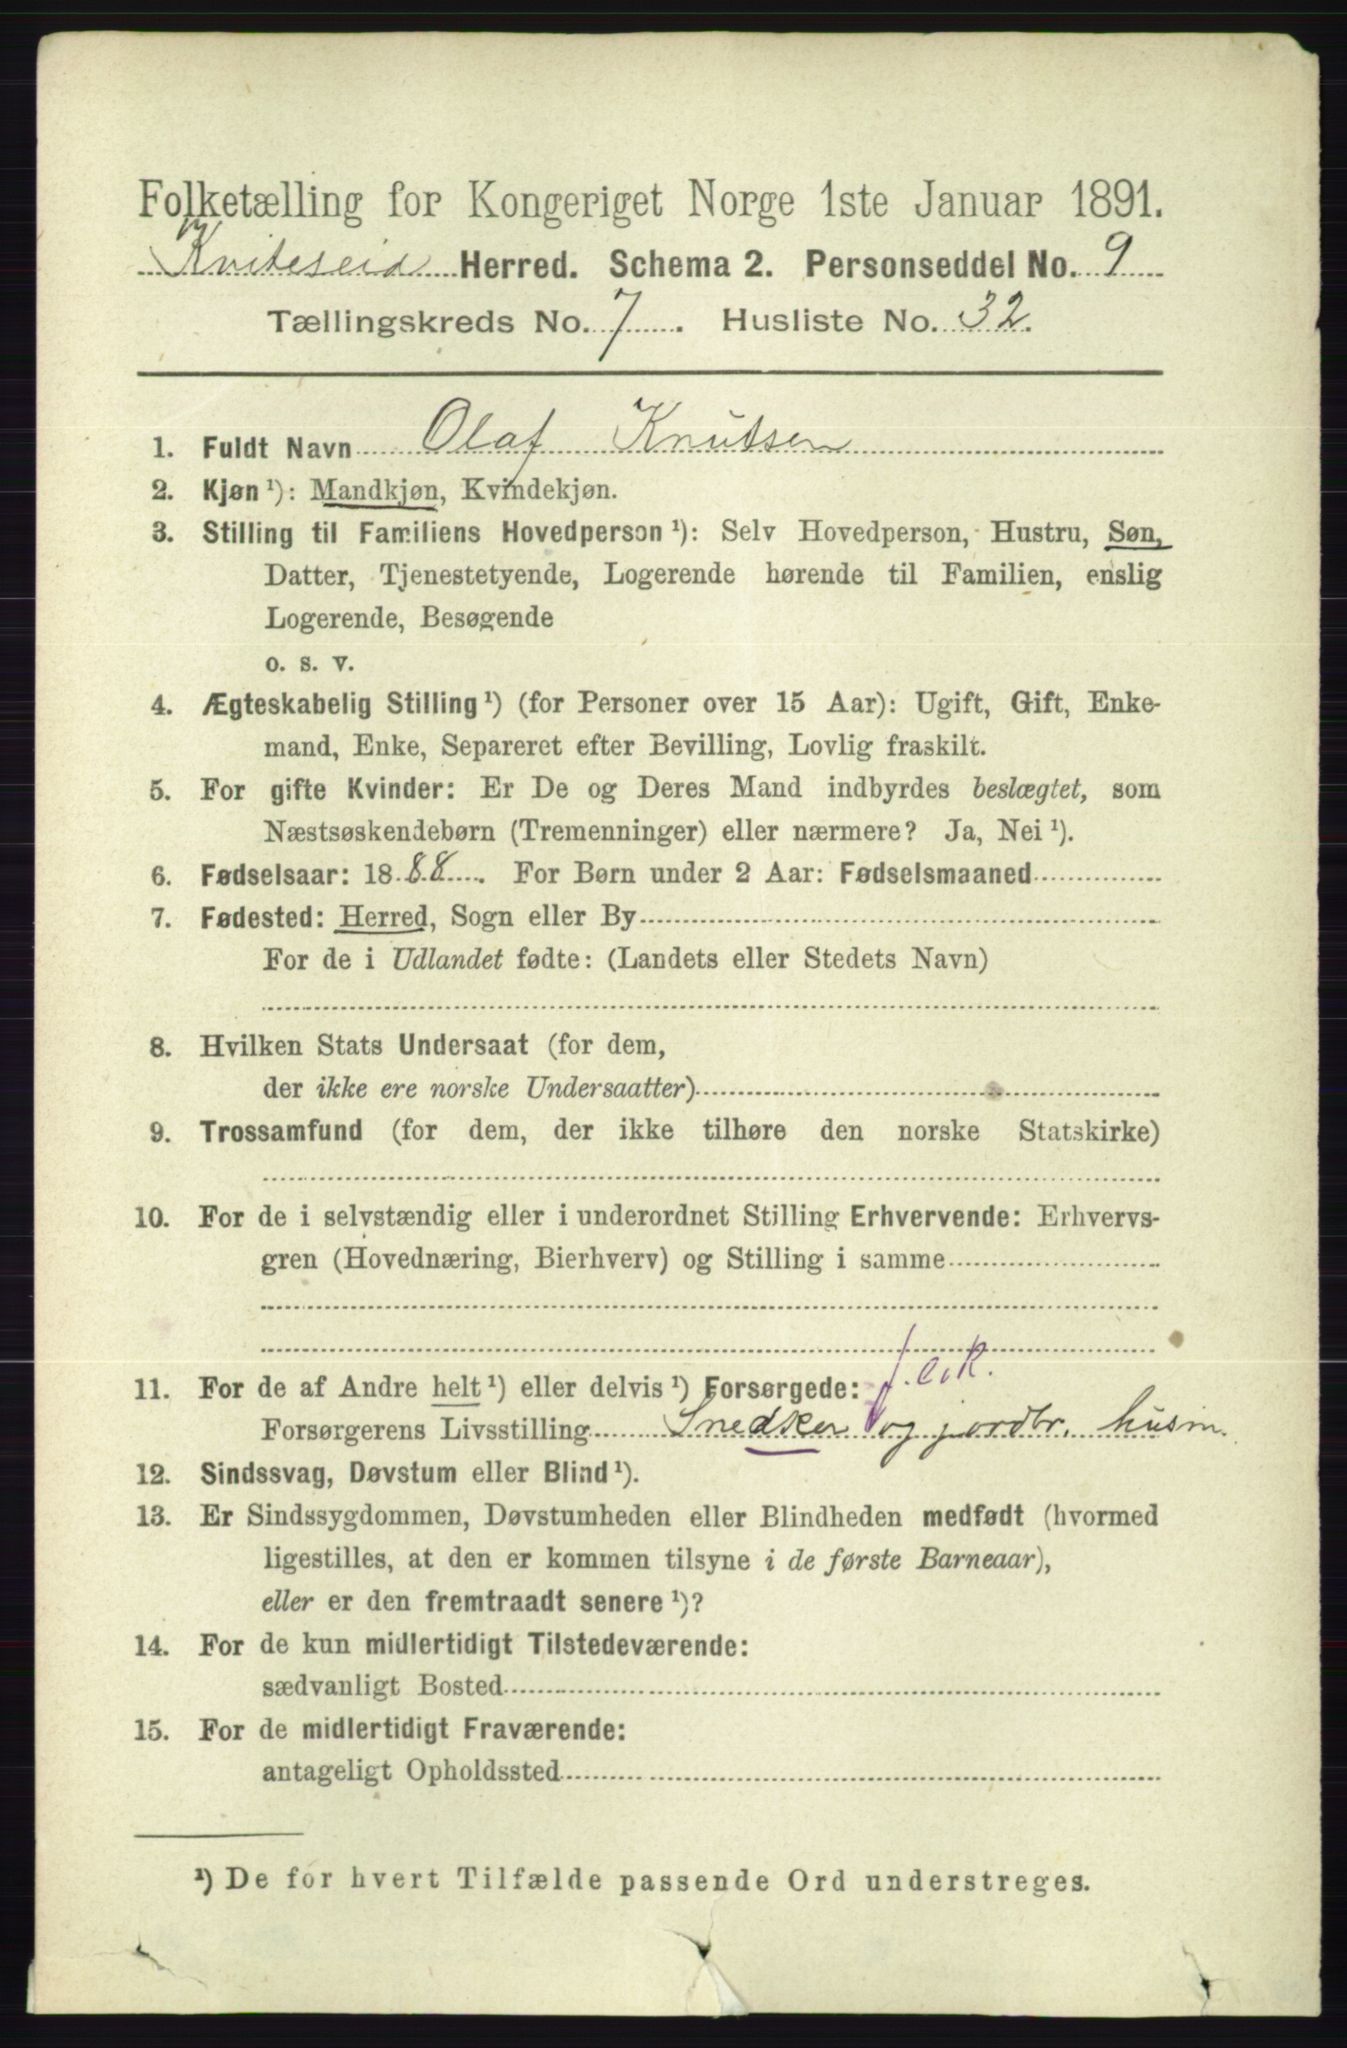 Folketælling for Kongeriget Norge 1ste Januar 1891.
Kviteseid Herred. Schema 2. Personseddel No. 9
Tællingskreds No. 7. Husliste No. 32.
1. Fuldt Navn Olaf Knutsen
2. Kjøn ¹): Mandkjøn, Kvindekjøn.
3. Stilling til Familiens Hovedperson ¹): Selv Hovedperson, Hustru, Søn,
Datter, Tjenestetyende, Logerende hørende til Familien, enslig
Logerende, Besøgende
o. s. v.
4. Ægteskabelig Stilling ¹) (for Personer over 15 Aar): Ugift, Gift, Enke-
mand, Enke, Separeret efter Bevilling, Lovlig fraskilt.
5. For gifte Kvinder: Er De og Deres Mand indbyrdes beslægtet, som
Næstsøskendebørn (Tremenninger) eller nærmere? Ja, Nei ¹).
6. Fødselsaar: 1888. For Børn under 2 Aar: Fødselsmaaned
7. Fødested: Herred, Sogn eller By
For de i Udlandet fødte: (Landets eller Stedets Navn)
8. Hvilken Stats Undersaat (for dem,
der ikke ere norske Undersaatter)
9. Trossamfund (for dem, der ikke tilhøre den norske Statskirke)
10. For de i selvstændig eller i underordnet Stilling Erhvervende: Erhvervs-
gren (Hovednæring, Bierhverv) og Stilling i samme
11. For de af Andre helt ¹) eller delvis ¹) Forsørgede:
Forsørgerens Livsstilling Snedker og jordbr. husm.
12. Sindssvag, Døvstum eller Blind ¹).
13. Er Sindssygdommen, Døvstumheden eller Blindheden medfødt (hvormed
ligestilles, at den er kommen tilsyne i de første Barneaar),
eller er den fremtraadt senere ¹)?
14. For de kun midlertidigt Tilstedeværende:
sædvanligt Bosted
15. For de midlertidigt Fraværende:
antageligt Opholdssted
¹) De for hvert Tilfælde passende Ord understreges.